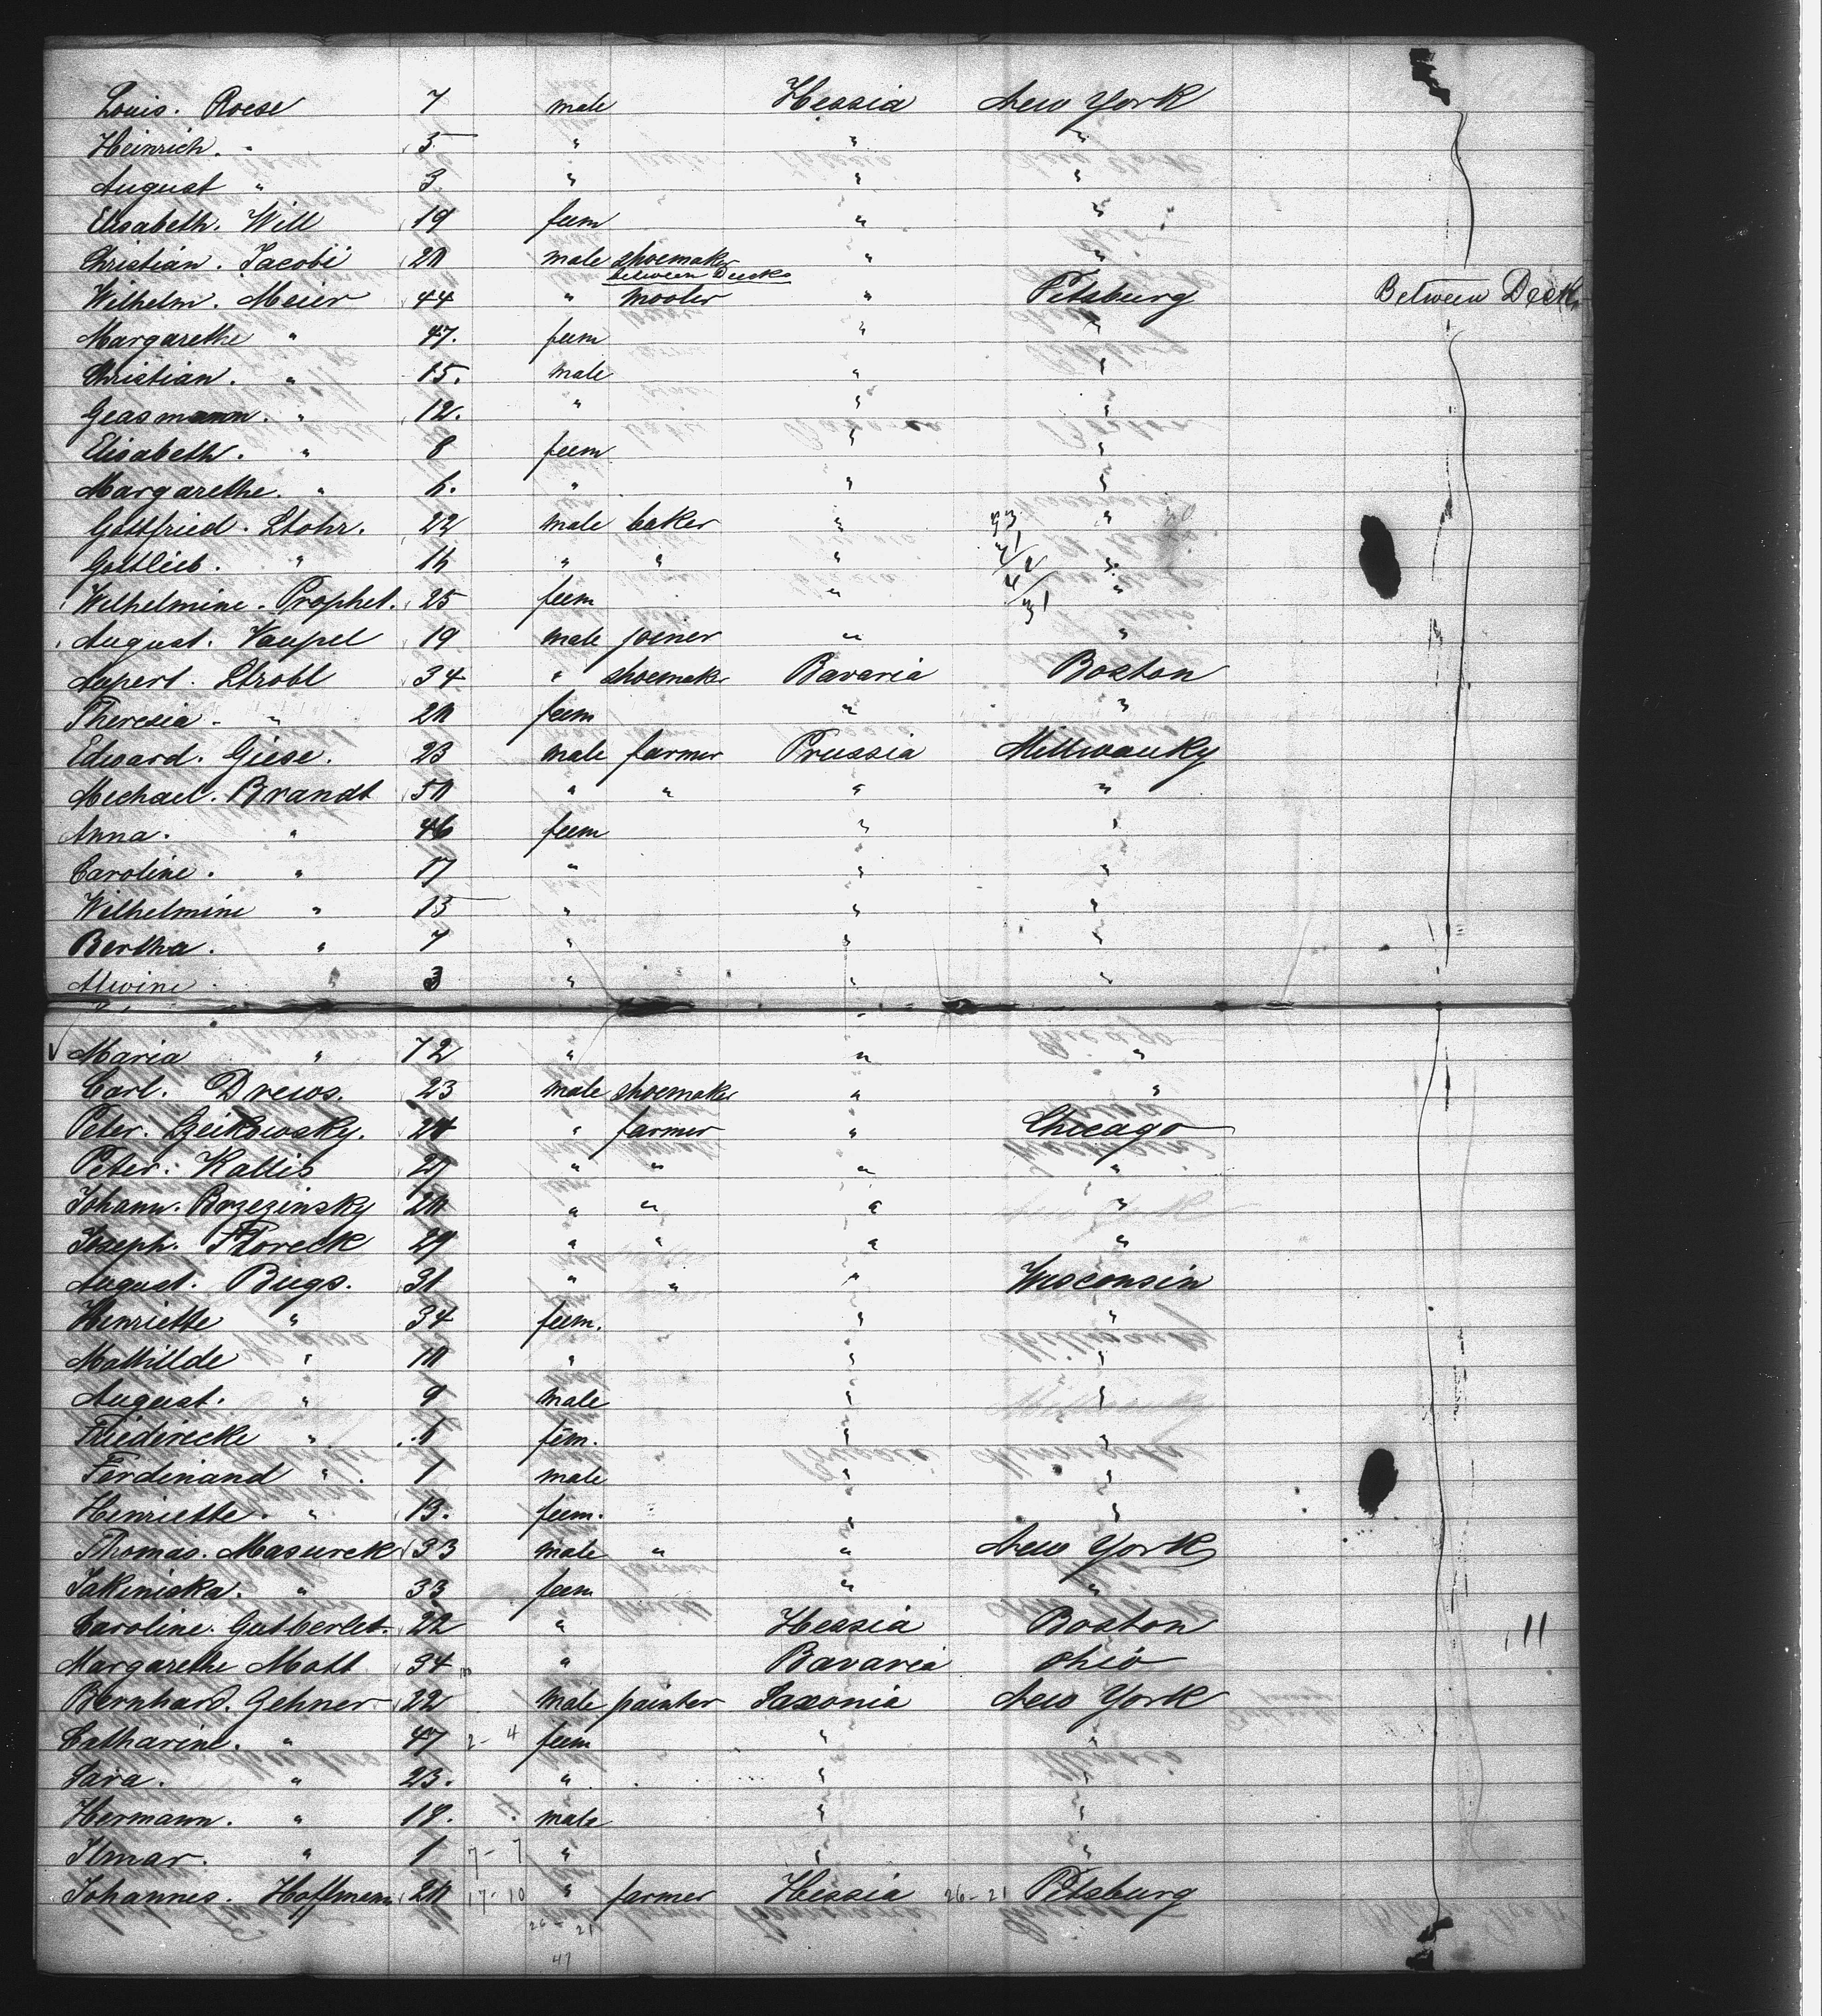 Louis. Roese 7 male Hessia New York
Heinrich. " 5 " " "
August " 3 " " "
Elisabeth. Will 19 feem " "
Christian. Jacobi 20 male shoemaker " "
between Decks
Wilhelm. Meier 44 " " Pitsburg Between Decks
Margarethe " 47. feem " "
Christian. " 15. male " "
" 12. " " "
Elisabeth. " 8 feem " "
Margarethe. " 6. " " "
Gottfried. Stohr. 22 male baker " "
Gottlieb. " 16 " " " "
Wilhelmine. Prophet. 25 feem " "
August. Vaupel 19 male joiner " "
Rupert. Strobl 34 " shoemak Bavaria Boston
Theresia. " 20 feem " "
Edward. Giese. 23 male farmer Prussia Millwauky
Michael. Brandt 50 " " " "
Anna. " 46 feem " "
Caroline. " 17 " " "
Wilhelmine " 15 " " "
Bertha. " 7 " " "
Alwine. " 3 " " "
Maria " 72 " " "
Carl. Drews. 23 male shoemaker " "
Peter. 24 " farmer " Chicago
Peter. Kallis 27 " " " "
Johann. Brzezinsky 20 " " " "
Joseph. Floreck 29 " " " "
August. Bugs. 31 " " " Wisconsin
Henriette " 34 feem. " "
Mathillde " 10 " " "
August. " 9 male " "
Friedirecke " 6 fem. " "
Ferdinand " 1 male " "
Henriette. " 13. feem. " "
Thomas. Masureck 33 male " " New York
" 33 feem " "
Caroline. Gutberlet. 22 " Hessia Boston 11
Margarethe Mott 34 " Bavaria Ohio
Bernhard. Gehner 22 male painter Saxonia New York
Catharine. " 47 2-4 feem " "
Sara. " 23. " " "
Hermann. " 18. 4 male " "
Ilmar. " 1 7-7 " " "
Johannes. Hoffmann 20 17-10 " farmer Hessia 26-21 Pitsburg
26-21
47